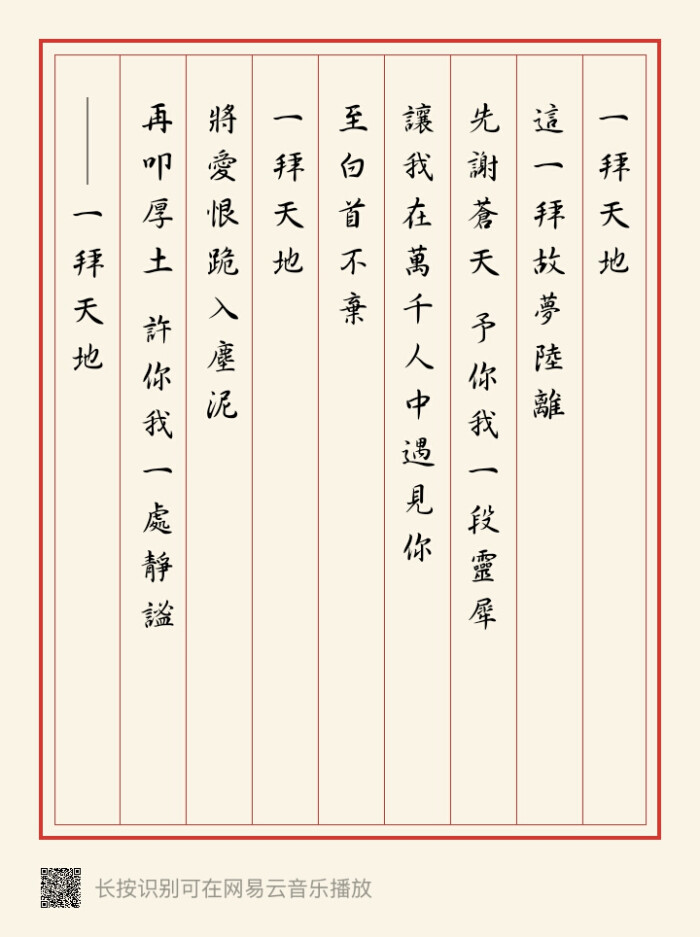 一拜天地
這一拜故夢陸離
先謝蒼天 予你我一段靈犀
讓我在萬千人中遇見你
至白首不棄
一拜天地
將愛恨跪入塵泥
再叩厚土 許你我一處靜謐
——一拜天地
长按识别可在网易云音乐播放